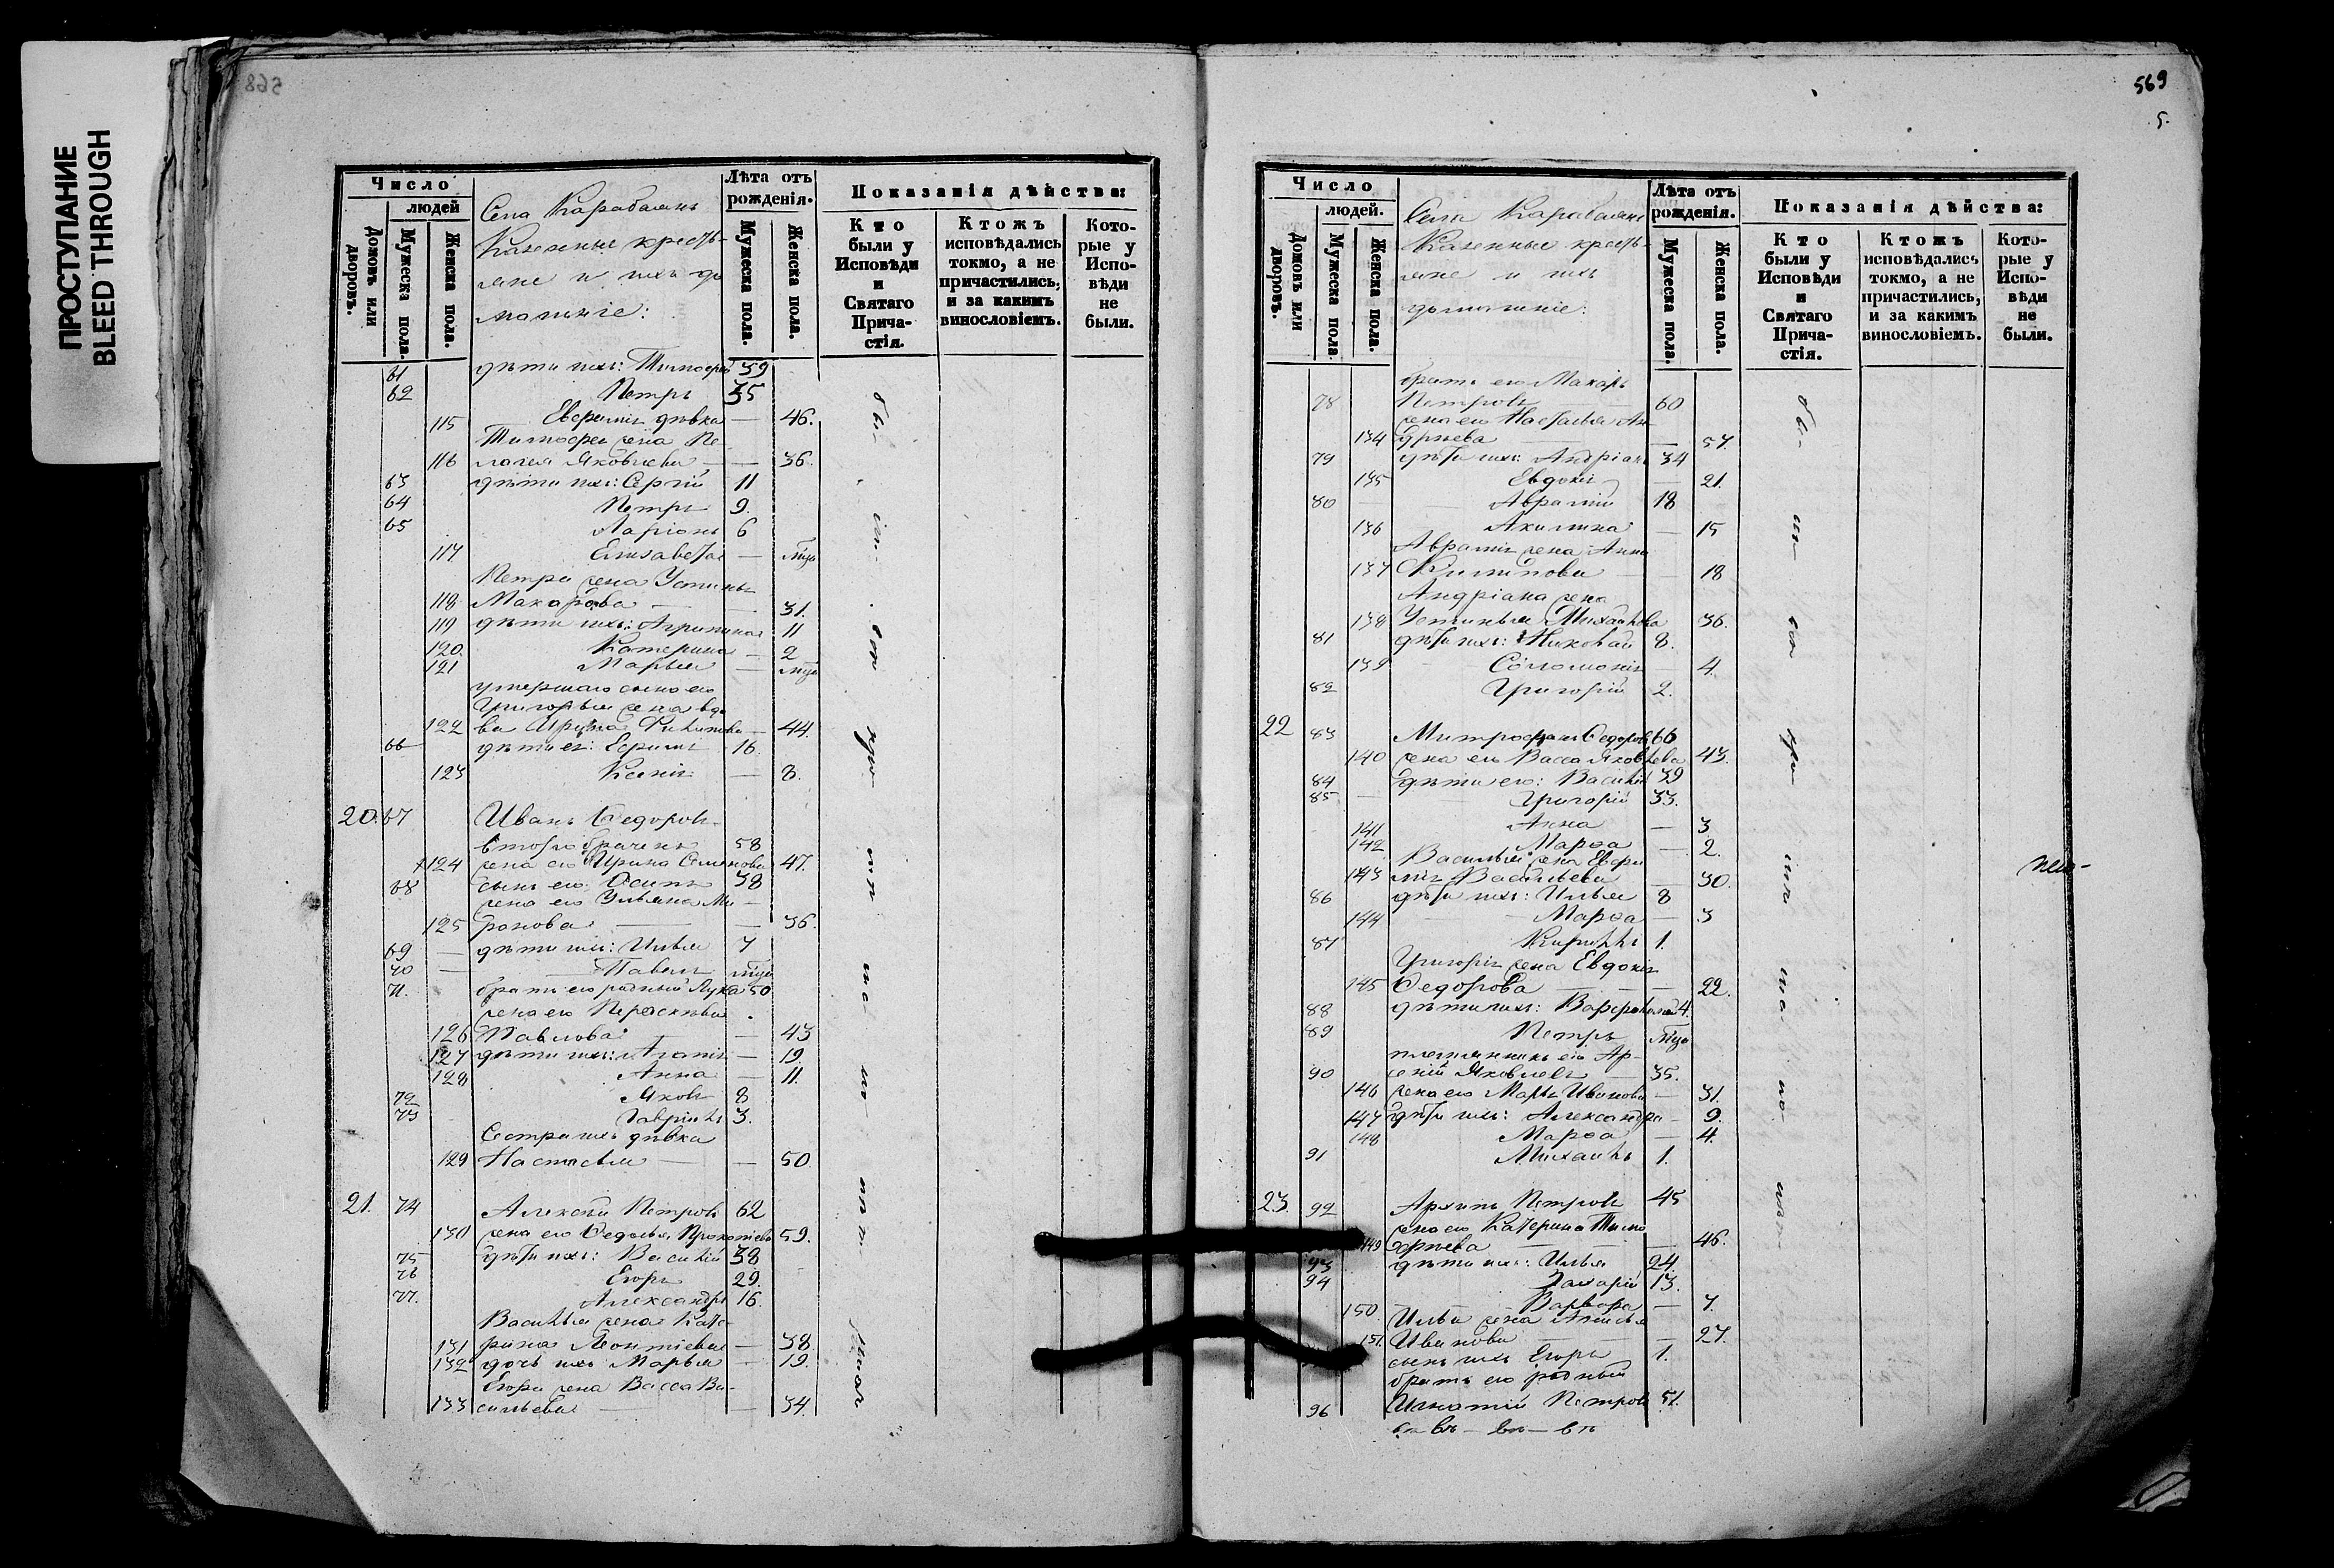 ПРОСТУПАНИЕ
BLEED THROUGH
568
Число
людей
Домовъ или дворовъ.
Мужеска пола.
Женска пола.
Села Карабаянъ
Казенные кресть-
яне и ихъ до
машніе:
Лѣта отъ рожденія.
Мужеска пола.
Женска пола.
Показанія дѣйства:
Кто были у Исповѣди и Святаго Прича-стія.
Ктожъ исповѣдались токмо, а не причастились, и за какимъ винословіемъ.
Кото-рые у Испо-вѣди не были.
61 дѣти ихъ: Тимофей 59
62 Петръ 35
115 Евфимія дѣвка — 46.
Тимофея жена Пе-
116 лагея Яковлева — — 36.
63 дѣти ихъ: Сергій 11
64 Петръ 9.
65 Ларіонъ 6
117 Елизавета —
Петра жена Устинья
118 Макарова — — 31.
119 дѣти ихъ: Агрипина 11
120. Катерина — 2
121 Марья —
умершаго сына его
Григорья жена вдо
122 ва Ирина Филипова — 44.
66 дѣти ея: Ефимъ 16.
123 Ксенія — 8.
20. 67 Иванъ Ѳедоровъ
второбраченъ 58
124 жена его Ирина Семенова 47.
68 сынъ его: Осипъ 38
жена его Ульяна Ми-
125 ронова — — 36.
69 дѣти ихъ: Илья 7
70 Павелъ
71. братъ его родный Лука 50
жена его Параскевья
126 Павлова — 43
127 дѣти ихъ: Агапія — 19.
128 Анна — 11.
72 Яковъ 8
73 Гаврилъ 3.
Сестра ихъ дѣвка
129 Настасья — — 50.
21. 74 Алексѣй Петровъ 62
130 жена его Ѳедосья Прокопіева 59.
75 дѣти ихъ: Василій 38
76 Егоръ 29.
77. Александръ 16.
Василья жена Кате-
131 рина Леонтіева — 38.
132 дочь ихъ Марья — 19.
Егора жена Васса Ва-
133 сильева — — 34.
569
5.
Число
людей.
Домовъ или дворовъ.
Мужеска пола
Женска пола.
Села Карабаянъ
Казенные кресть-
яне и ихъ
домашніе:
Лѣта отъ рожденія.
Мужеска пола.
Женска пола.
Показанія дѣйства:
Кто были у Исповѣди и Святаго Прича-стія.
Ктожъ исповѣдались токмо, а не причастились, и за какимъ винословіемъ.
Кото-рые у Испо-вѣди не были.
братъ его Макаръ
78 Петровъ 60
жена его Настасья Ан-
134 дреева — 57.
79 дѣти ихъ: Андріанъ 34
135 Евдокія — 21.
80 Аврамій 18
136 Акилина — 15
Аврамія жена Анна
137 Филипова — 18
Андріана жена
138 Устинья Михайлова 36.
81 дѣти ихъ: Николай 8.
139 Соломонія — 4.
82 Григорій 2.
22 83 Митрофанъ Ѳедоровъ 66
140 жена его Васса Яковлева 43.
84 дѣти его: Василій 39
85 Григорій 33.
141 Анна — 3
142 Марѳа — 2.
Василья жена Евфи
143 мія Васильева — 30.
86 дѣти ихъ: Илья 8
144 Марѳа — 3
87 Кирилъ 1.
Григорія жена Евдокія
145 Ѳедорова — — 22.
88 дѣти ихъ: Варфоломей 4.
89 Петръ
племянникъ его Ар-
90 сеній Яковлевъ 35.
146 жена его Марья Иванова — 31.
147 дѣти ихъ: Александра — 9.
148 Марѳа — 4.
91 Михаилъ 1.
23. 92 Архипъ Петровъ 45
жена его Катерина Тимо
149 фѣева — — 46.
93 дѣти ихъ: Илья 24.
94 Захарій 13.
150 Варвара — 7.
Ильи жена Анисья
151. Иванова — — 27.
сынъ ихъ Егоръ 1.
братъ его родный
96 Игнатій Петровъ 51.